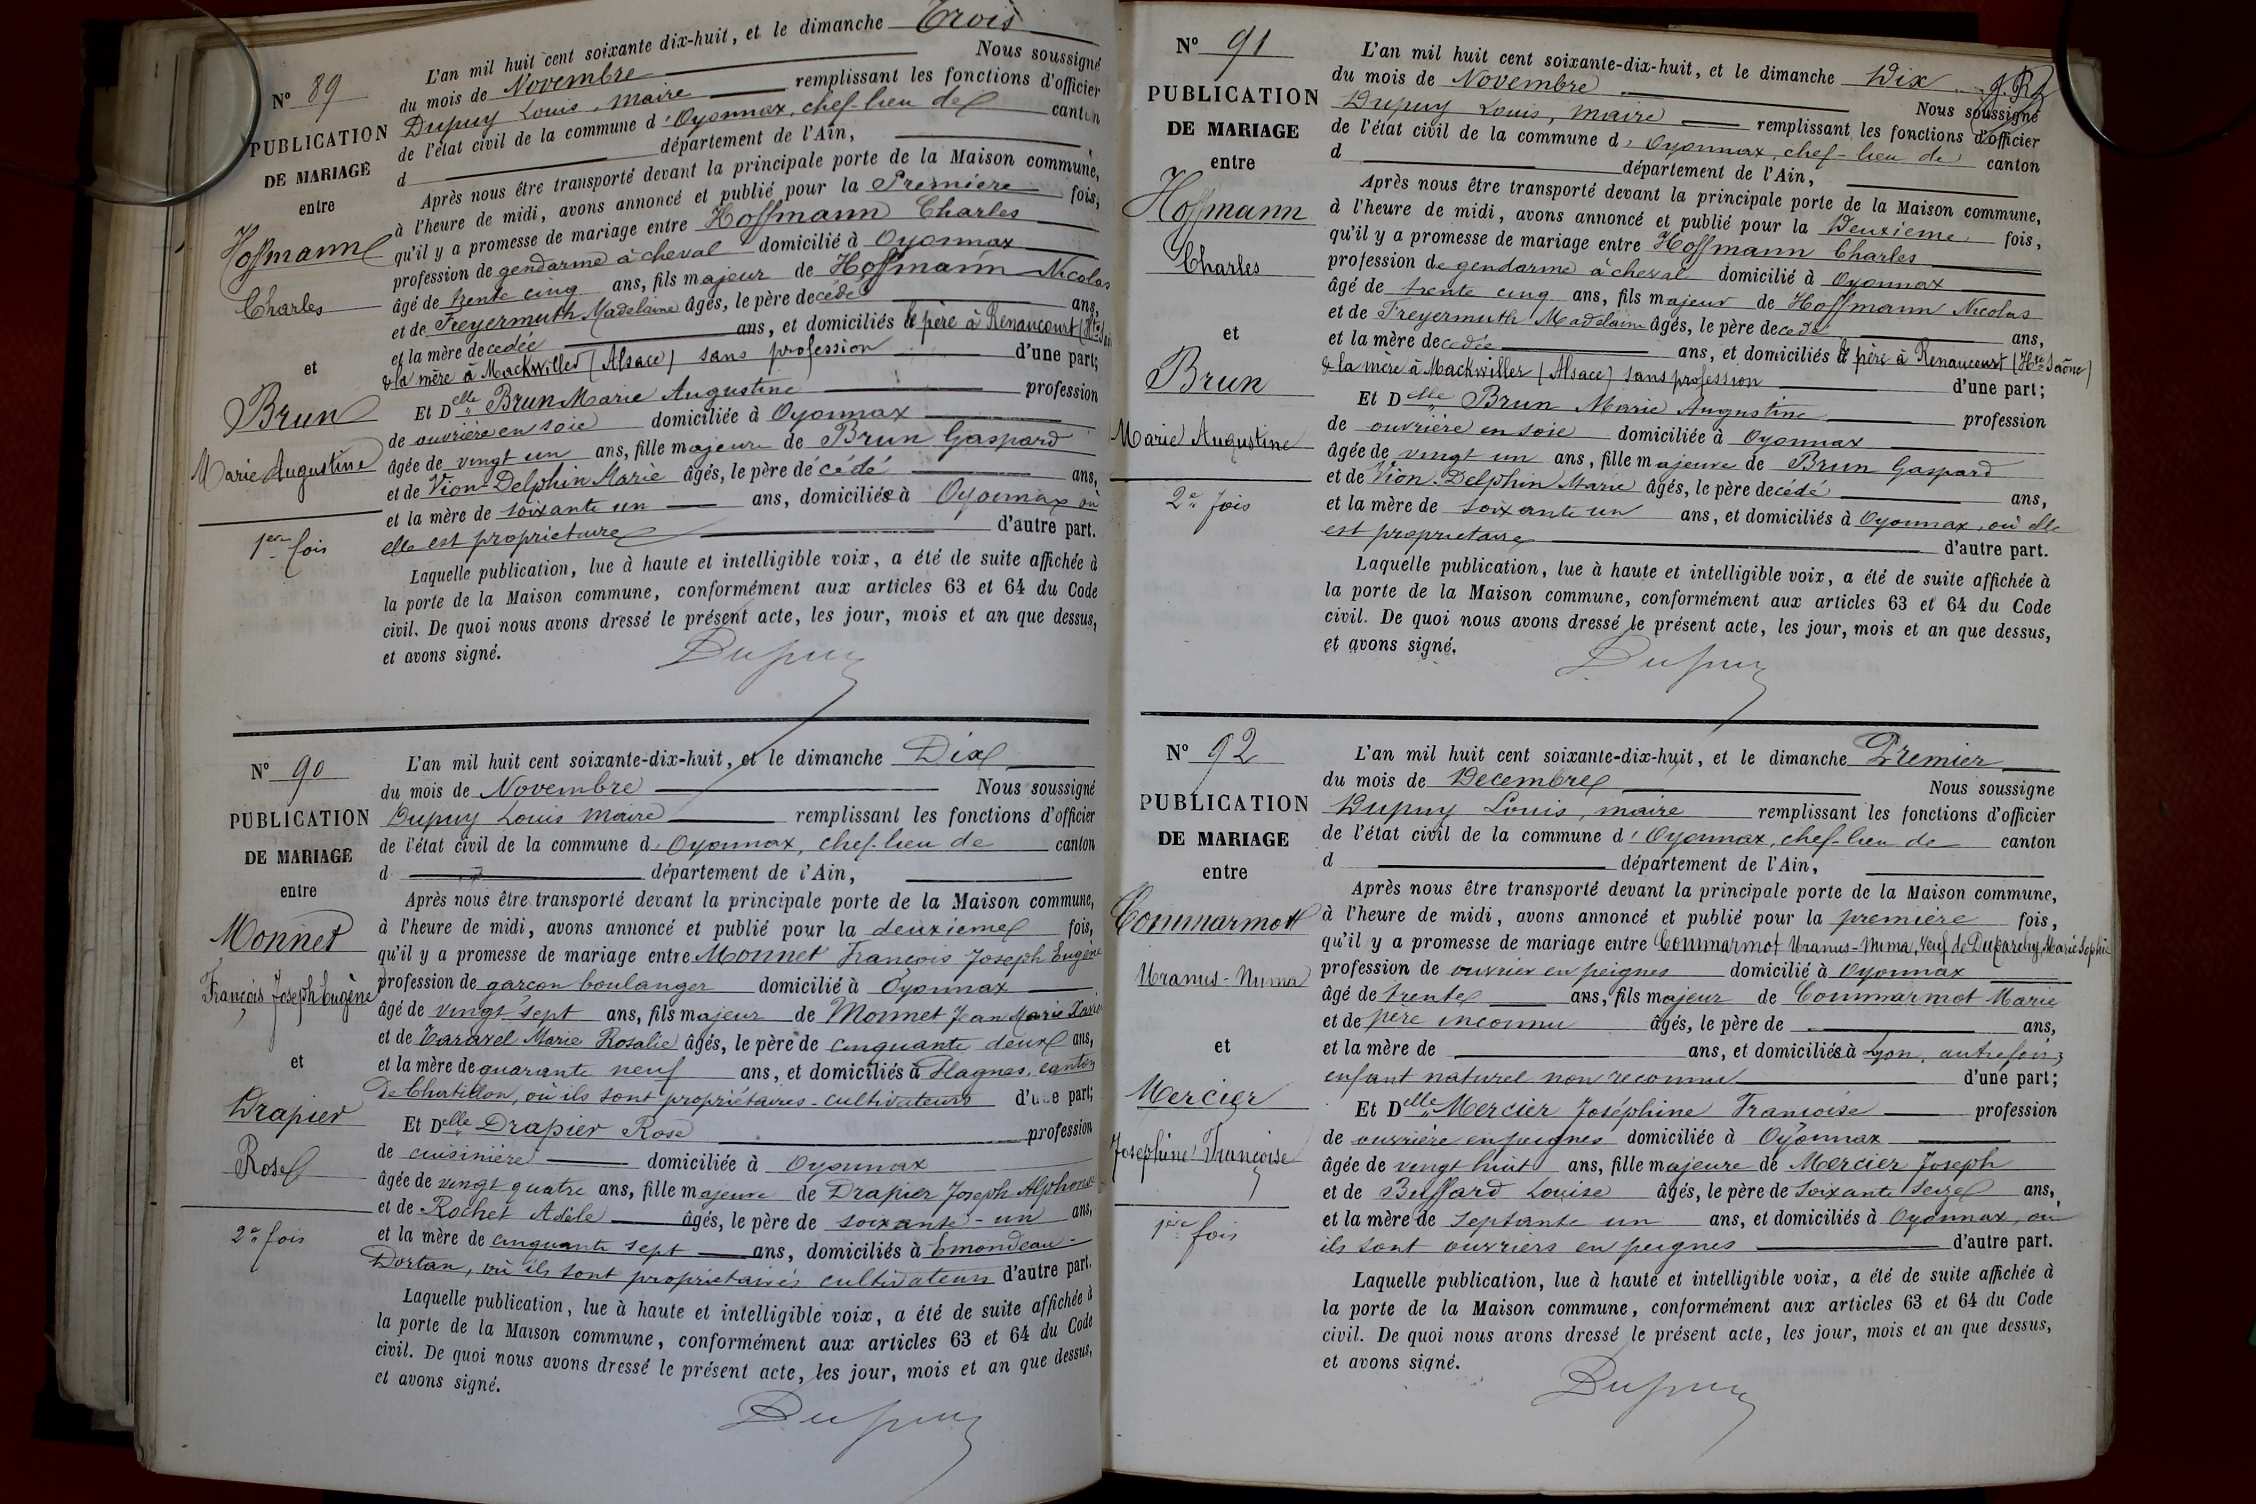 N° 89
PUBLICATION
DE MARIAGE
entre
Hoffmann
Charles
et
Brun
Marie Augustine
1ere fois
L'an mil huit cent soixante dix-huit, et le dimanche Trois
du mois de Novembre Nous soussigné
Dupuy Louis, Maire remplissant les fonctions d'officier
de l'état civil de la commune d'Oyonnax, chef-lieu de canton
d département de l'Ain,
Après nous être transporté devant la principale porte de la Maison commune,
à l'heure de midi, avons annoncé et publié pour la Première fois,
qu'il y a promesse de mariage entre Hoffmann Charles
profession de gendarme à cheval domicilié à Oyonnax
âgé de trente cinq ans, fils majeur de Hoffmann Nicolas
et de Freyermuth Madelaine âgés, le père decédé ans,
et la mère decedée ans, et domiciliés le père à Renaucourt (Hte Saô
& la mère à Mackwiller (Alsace) sans profession d'une part;
Et Delle Brun Marie Augustine profession
de ouvrière en soie domiciliée à Oyonnax
âgée de vingt un ans, fille majeure de Brun Gaspard
et de Vion-Delphin Marie âgés, le père décédé ans,
et la mère de soixante un ans, domiciliée à Oyonnax où
elle est propriétaire d'autre part.
Laquelle publication, lue à haute et intelligible voix, a été de suite affichée à
la porte de la Maison commune, conformément aux articles 63 et 64 du Code
civil. De quoi nous avons dressé le présent acte, les jour, mois et an que dessus,
et avons signé.
Dupuy
N° 90
PUBLICATION
DE MARIAGE
entre
Monnet
François Joseph Eugène
et
Drapier
Rose
2e fois
L'an mil huit cent soixante-dix-huit, et le dimanche Dix
du mois de Novembre Nous soussigné
Dupuy Louis Maire remplissant les fonctions d'officier
de l'état civil de la commune d'Oyonnax, chef-lieu de canton
d département de l'Ain,
Après nous être transporté devant la principale porte de la Maison commune,
à l'heure de midi, avons annoncé et publié pour la deuxième fois,
qu'il y a promesse de mariage entre Monnet François Joseph Eugène
profession de garçon boulanger domicilié à Oyonnax
âgé de vingt sept ans, fils majeur de Monnet Jean Marie Xavier
et de Caravel Marie Rosalie âgés, le père de cinquante deux ans,
et la mère de quarante neuf ans, et domiciliés à Plagnes, canton
de Chatillon, où ils sont propriétaires-cultivateurs d'une part;
Et Delle Drapier Rose profession
de cuisinière domiciliée à Oyonnax
âgée de vingt quatre ans, fille majeure de Drapier Joseph Alphonse
et de Rochet Adèle âgés, le père de soixante-un ans,
et la mère de cinquante sept ans, domiciliés à Emondeau-
Dortan, où ils sont propriétaires cultivateurs d'autre part.
Laquelle publication, lue à haute et intelligible voix, a été de suite affichée à
la porte de la Maison commune, conformément aux articles 63 et 64 du Code
civil. De quoi nous avons dressé le présent acte, les jour, mois et an que dessus,
et avons signé.
Dupuy
N° 91
PUBLICATION
DE MARIAGE
entre
Hoffmann
Charles
et
Brun
Marie Augustine
2e fois
L'an mil huit cent soixante-dix-huit, et le dimanche Dix
du mois de Novembre Nous soussigné
Dupuy Louis, maire remplissant les fonctions d'officier
de l'état civil de la commune d'Oyonnax, chef-lieu de canton
d département de l'Ain,
Après nous être transporté devant la principale porte de la Maison commune,
à l'heure de midi, avons annoncé et publié pour la Deuxième fois,
qu'il y a promesse de mariage entre Hoffmann Charles
profession de gendarme à cheval domicilié à Oyonnax
âgé de trente cinq ans, fils majeur de Hoffmann Nicolas
et de Freyermuth Madelaine âgés, le père decedé ans,
et la mère decedée ans, et domiciliés le père à Renaucourt (Hte Saône)
& la mère à Mackwiller (Alsace) sans profession d'une part;
Et Delle Brun Marie Augustine profession
de ouvrière en soie domiciliée à Oyonnax
âgée de vingt un ans, fille majeure de Brun Gaspard
et de Vion-Delphin Marie âgés, le père decédé ans,
et la mère de soixante un ans, et domiciliés à Oyonnax, où elle
est propriétaire d'autre part.
Laquelle publication, lue à haute et intelligible voix, a été de suite affichée à
la porte de la Maison commune, conformément aux articles 63 et 64 du Code
civil. De quoi nous avons dressé le présent acte, les jour, mois et an que dessus,
et avons signé.
Dupuy
N° 92
PUBLICATION
DE MARIAGE
entre
Commarmot
Uranus-Numa
et
Mercier
Josephine Françoise
1ère fois
L'an mil huit cent soixante-dix-huit, et le dimanche Premier
du mois de Decembre Nous soussigne
Dupuy Louis, maire remplissant les fonctions d'officier
de l'état civil de la commune d'Oyonnax, chef-lieu de canton
d département de l'Ain,
Après nous être transporté devant la principale porte de la Maison commune,
à l'heure de midi, avons annoncé et publié pour la première fois,
qu'il y a promesse de mariage entre Commarmot Uranus-Numa, veuf de Duparchy Marie Sophie
profession de ouvrier en peignes domicilié à Oyonnax
âgé de trente ans, fils majeur de Commarmot Marie
et de père inconnu âgés, le père de ans,
et la mère de ans, et domiciliés à Lyon, autrefois;
enfant naturel non reconnu d'une part;
Et Delle Mercier Joséphine Françoise profession
de ouvrière en peignes domiciliée à Oyonnax
âgée de vingt huit ans, fille majeure de Mercier Joseph
et de Buffard Louise âgés, le père de soixante seize ans,
et la mère de septante un ans, et domiciliés à Oyonnax, où
ils sont ouvriers en peignes d'autre part.
Laquelle publication, lue à haute et intelligible voix, a été de suite affichée à
la porte de la Maison commune, conformément aux articles 63 et 64 du Code
civil. De quoi nous avons dressé le présent acte, les jour, mois et an que dessus,
et avons signé.
Dupuy